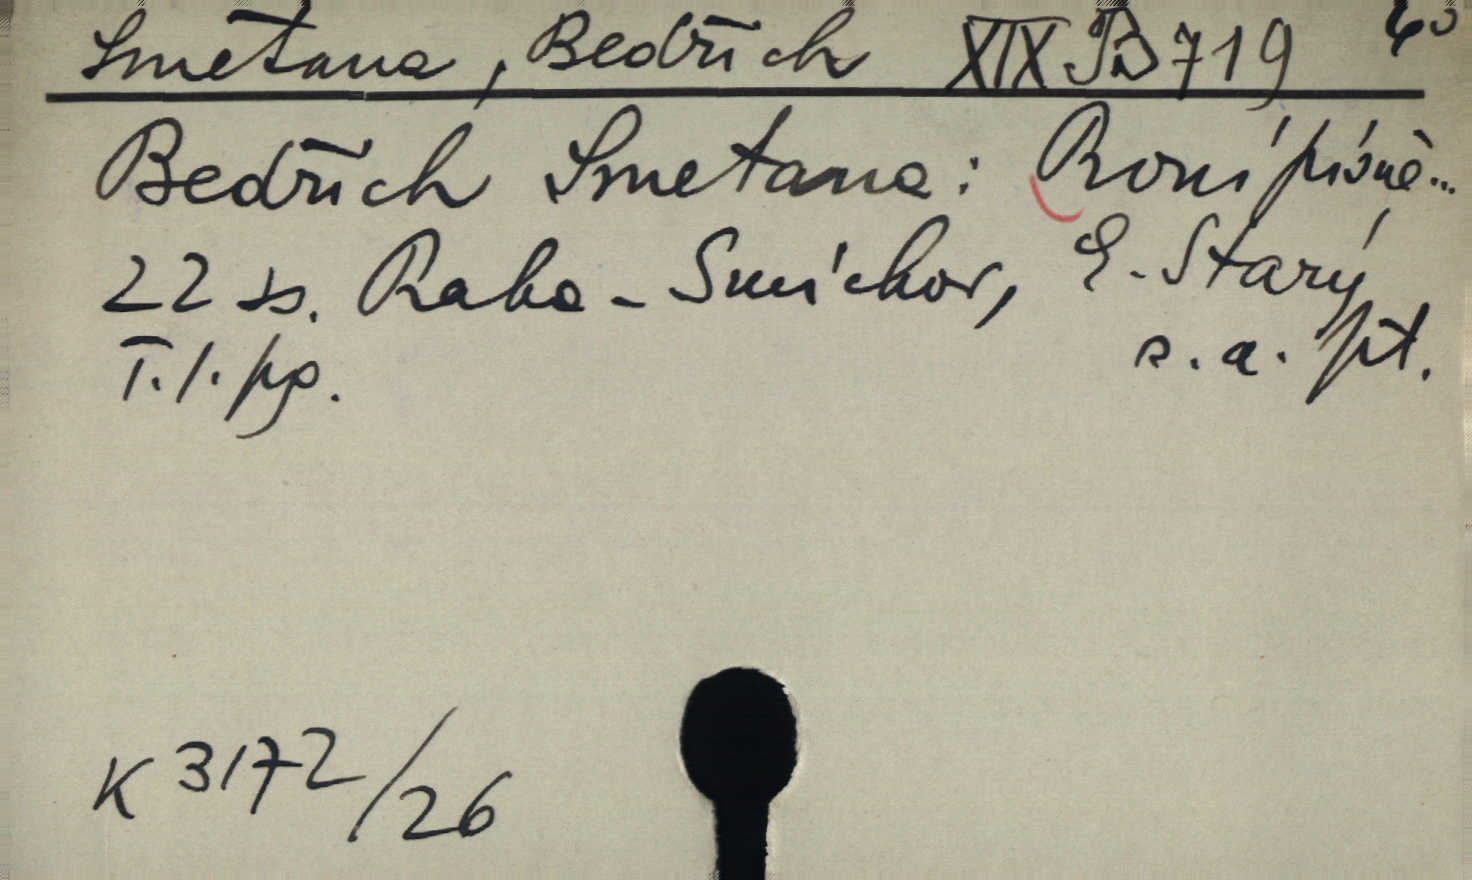 Smetana, Bedřich XIX B 719 4°
Bedřich Smetana: První písně...
22 ss. Praha - Smíchov, E. Starý
T. 1. pg. s. a. pt.
K 3172/26